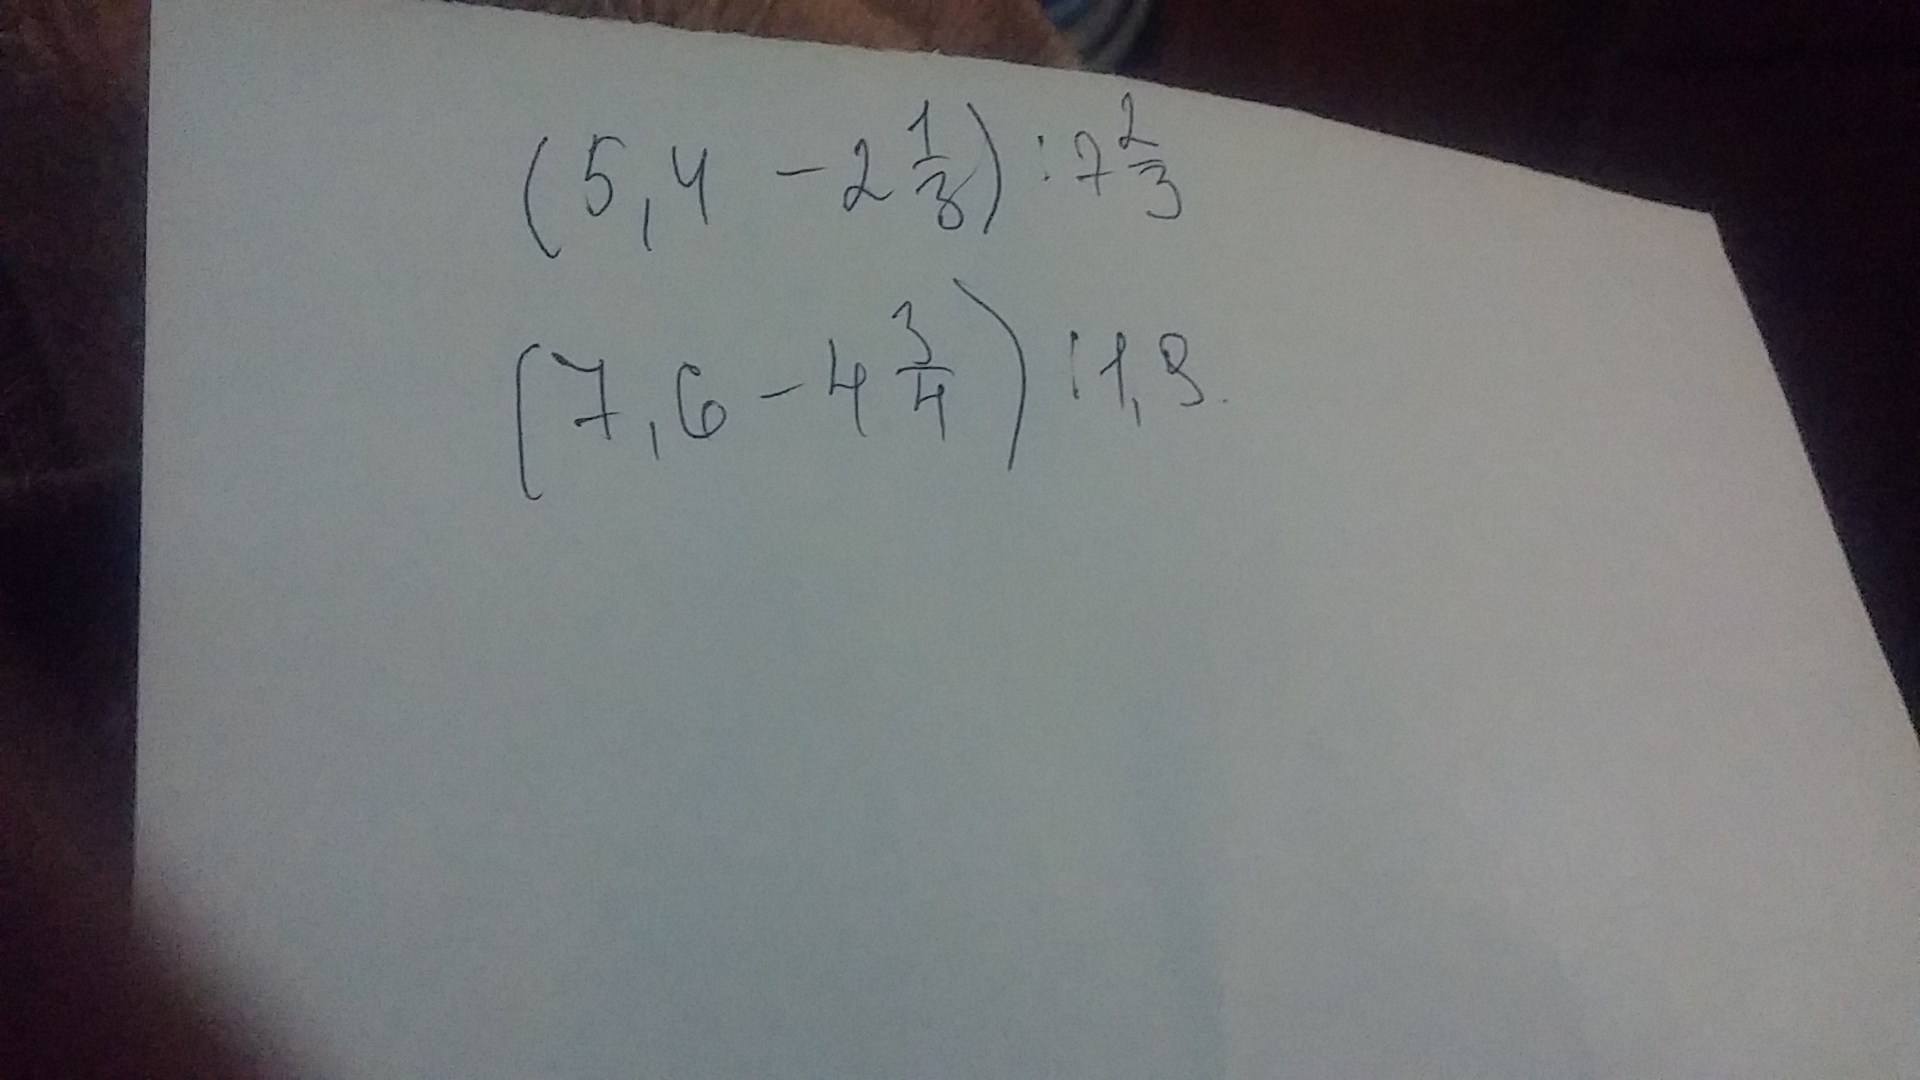 (5,4 - 2 1/3) : 7 2/3
(7,6 - 4 3/4) : 1,9.